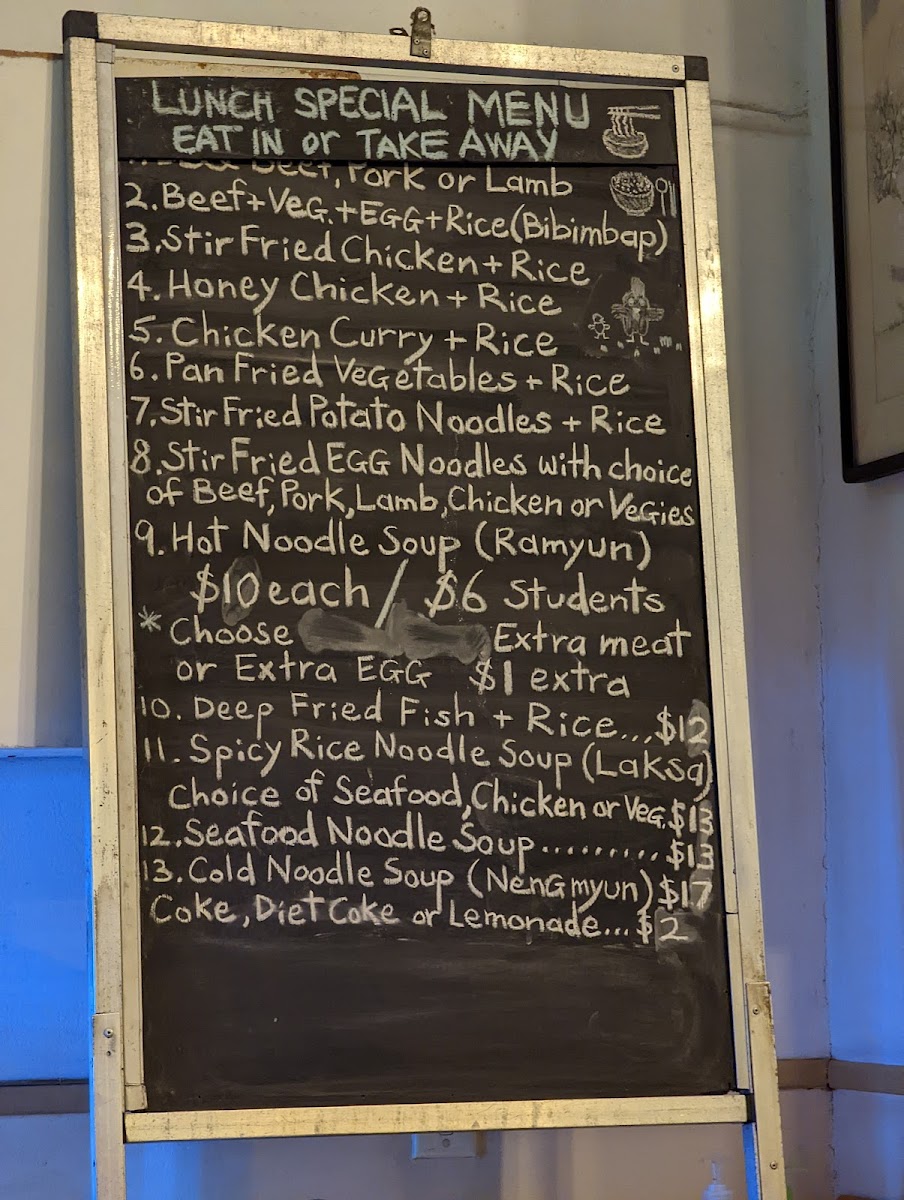 LUNCH SPECIAL MENU
EAT IN or TAKE AWAY
Beef, Pork or Lamb
2. Beef + VeG. + EGG + Rice (Bibimbap)
3. Stir Fried Chicken + Rice
4. Honey Chicken + Rice
5. Chicken Curry + Rice
6. Pan Fried VeGetables + Rice
7. Stir Fried Potato Noodles + Rice
8. Stir Fried EGG Noodles with choice
of Beef, Pork, Lamb, Chicken or VeGies
9. Hot Noodle Soup (Ramyun)
$10 each / $6 Students
* Choose Extra meat
or Extra EGG $1 extra
10. Deep Fried Fish + Rice... $12
11. Spicy Rice Noodle Soup (Laksa)
Choice of Seafood, Chicken or VeG. $13
12. Seafood Noodle Soup ......... $13
13. Cold Noodle Soup (NenG myun) $17
Coke, Diet Coke or Lemonade... $2